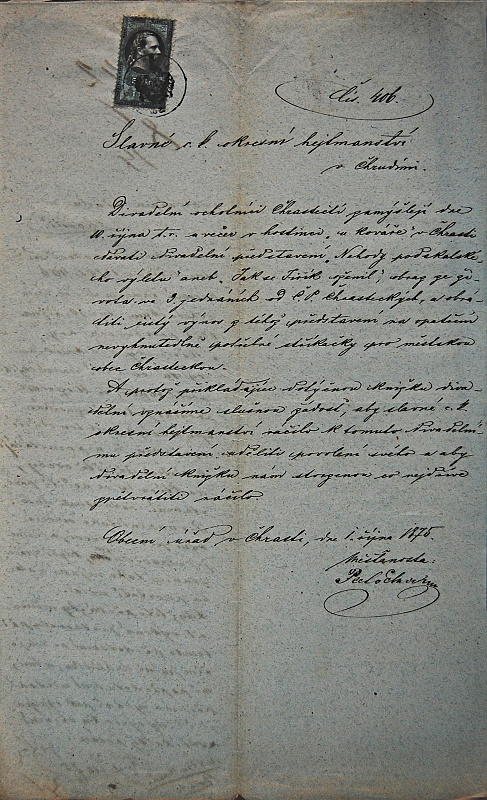 Čís. 406.
Slavné c. k. okresní hejtmanství
v Chrudimi.
Divadelní ochotníci Chrastečtí pomýšlejí dne
10. října t. r. a večer v hostinci „u kováře“ v Chrasti
dávati divadelní představení „Nehody
ho výletu“ aneb „Jak se Jiřík oženil“, obraz ze ži-
vota ve 3 jednáních od Chrasteckých, a obrá-
titi čistý výnos z této představení na opatření
nevyhnutedlně potřebné stříkačky pro městskou
obec Chrasteckou.
A protož přikládajíce dotýčnou knížku diva-
delní vznášíme slušnou žádost, aby slavné c. k.
okresní hejtmanství ráčilo k tomuto divadelní-
mu představení uděliti povolení svého a aby
divadelní knížku nám stvrzenou co nejdříve
zpětvrátiti ráčilo.
Obecní úřad v Chrasti, dne 1. října 1875.
Měšťanosta: